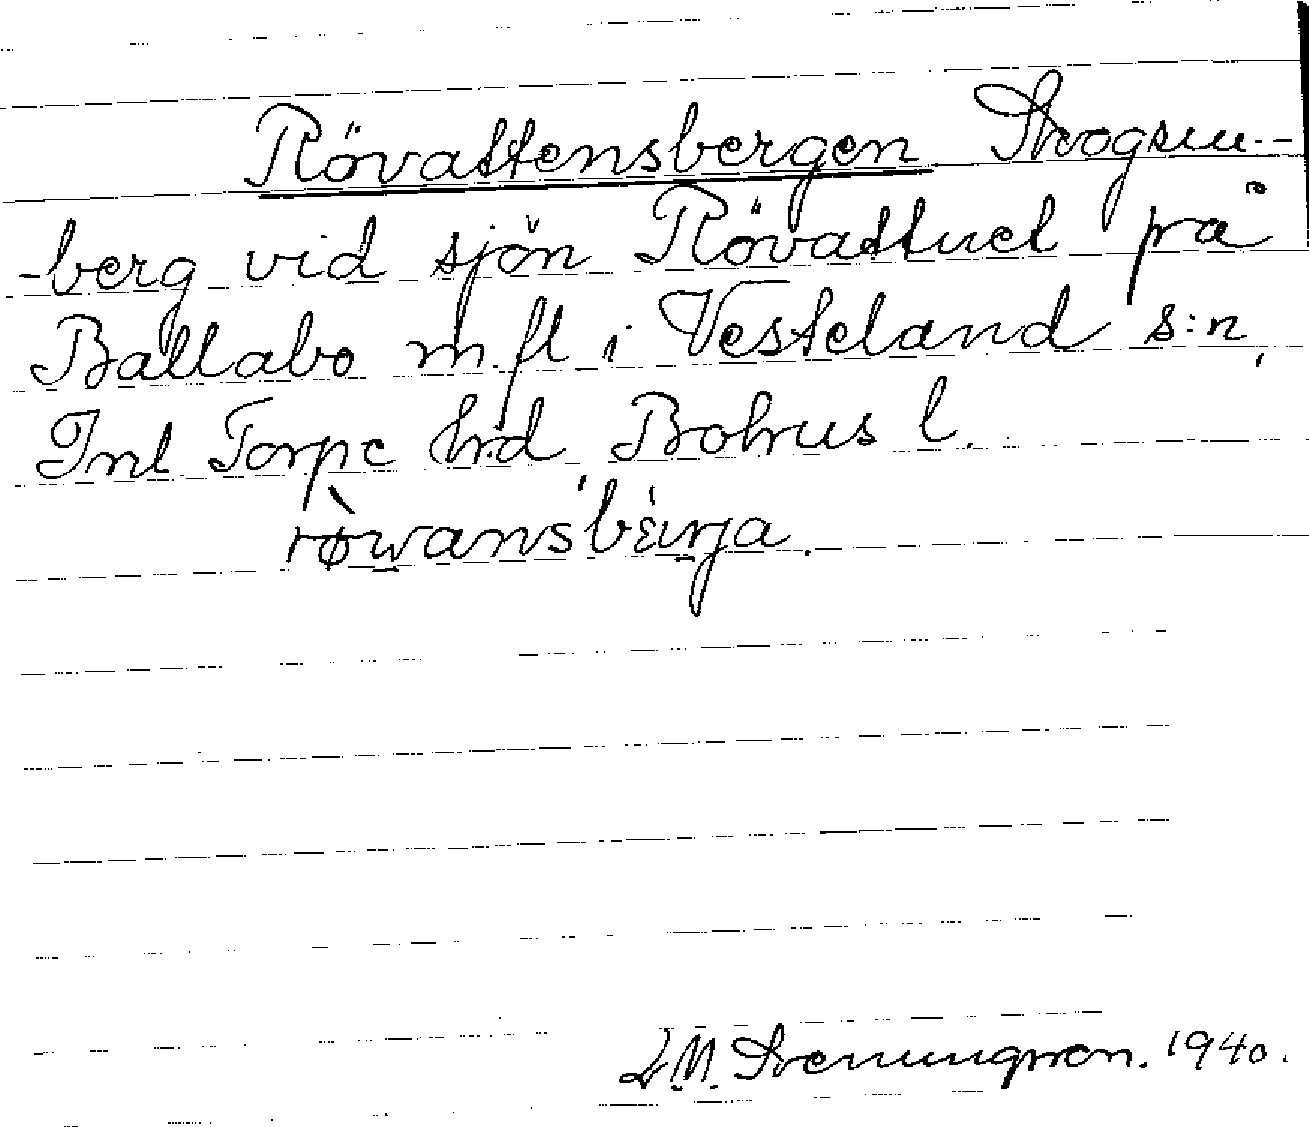 Rövattensbergen Skogsm-
-berg vid sjön Rövattnet på
Ballabo m.fl i Vesteland s:n,
Inl Torpe hd, Bohus l.
rø̀wans'bèinja.
L.M. Svenungsson. 1940.